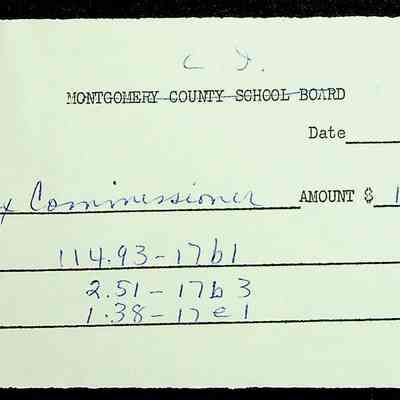 C I.
MONTGOMERY COUNTY SCHOOL BOARD
Date
x Commissioner AMOUNT $ 1
114.93-17b1
2.51-17b3
1.38-17e1